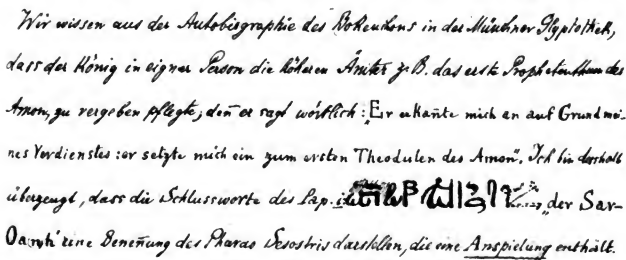 Wir wissen aus der Autobiographie des Bokenchons in der Münchner Glyptothek,
dass der König in eigner Person die höheren Ämter z.B. das erste Prophetenthum des
Amon, zu vergeben pflegte, den̅ er sagt wörtlich: „Er erkan̅te mich an auf Grund mei-
nes Verdienstes: er setzte mich ein zum ersten Theodulen des Amon“. Ich bin deshalb
überzeugt, dass die Schlussworte des Pap. „der Sar-
eine Benen̅ung des Pharao Sesostris darstellen, die eine Anspielung enthält.